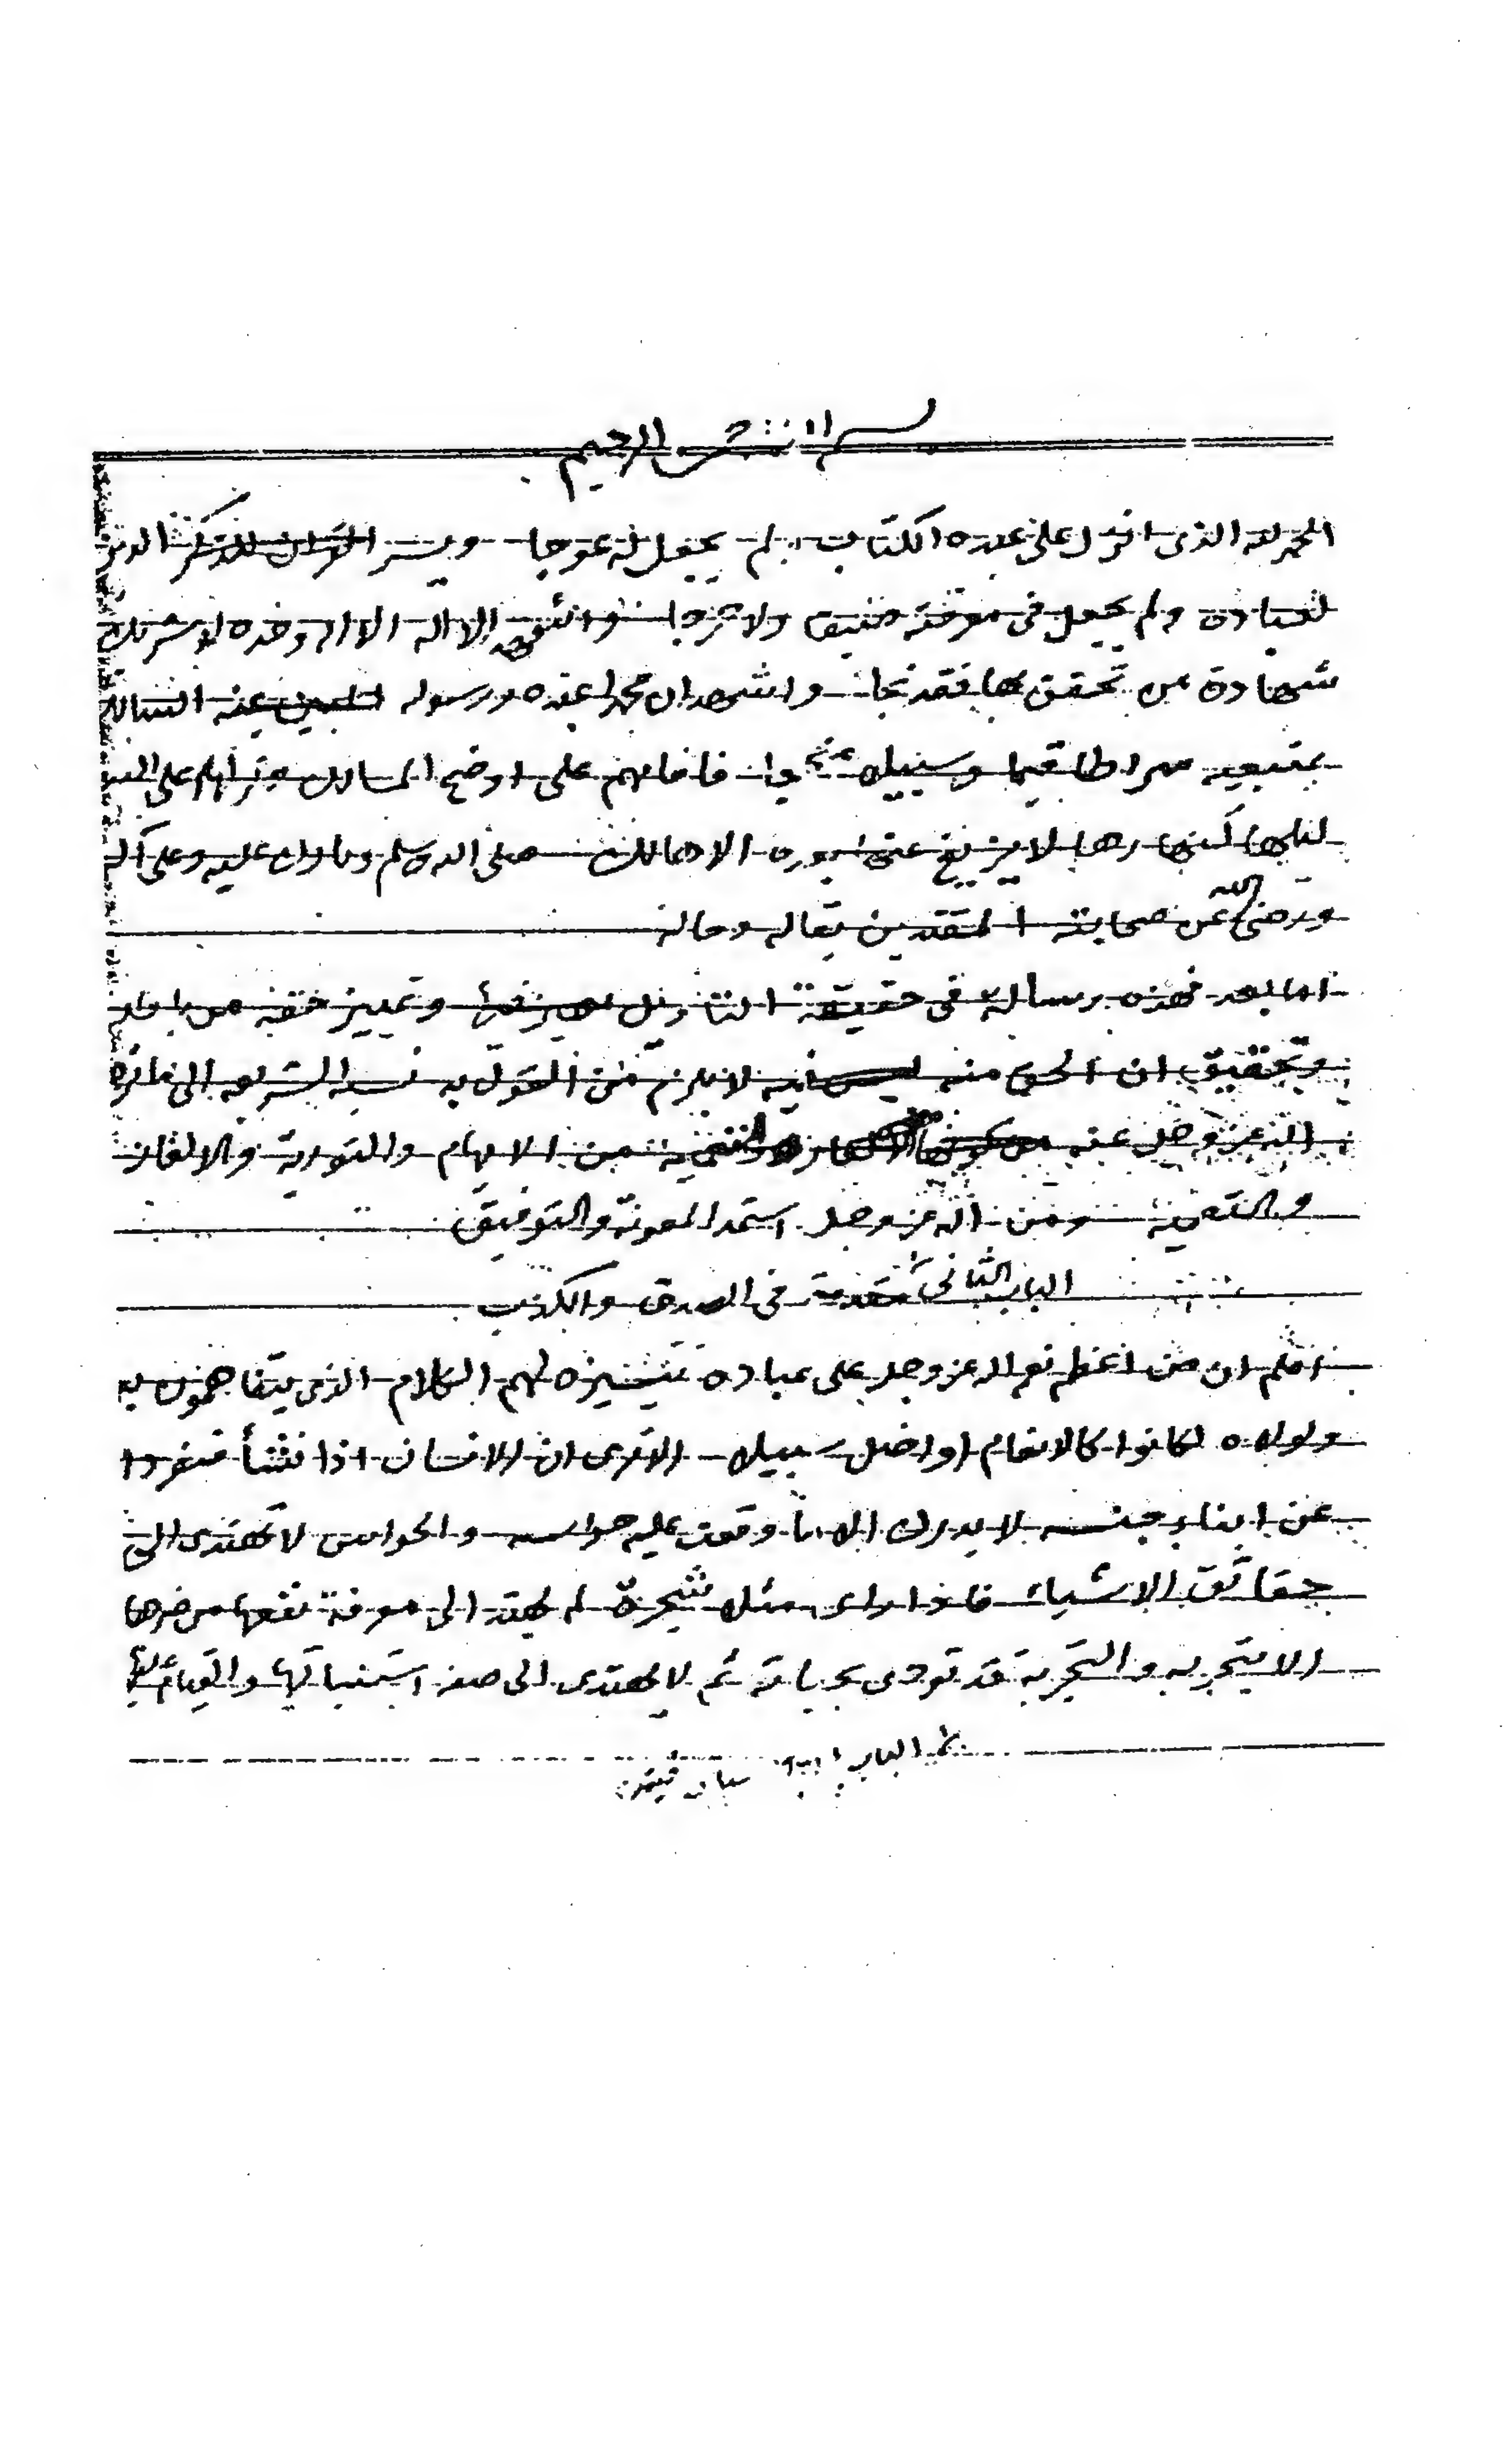 بسم الله الرحمن الرحيم
الحمد لله الذى انزل على عبده الكتاب ولم يجعل له عوجا ويسر القران للذكر
لعباده ولم يجعل فى معرفته ضيقا ولا حرجا واشهد ان لا اله الا الله وحده لا شريك
شهادة من تحقق بها فقد نجا واشهد ان محمدا عبده ورسوله
بمتبعيه صراطا قيما وسبيلا فاقامهم على اوضح المسالك على
ليلها كنهارها لا يزيغ عنى الا هالك صلى الله وسلم وبارك عليه وعلى آله
ورضى الله عن صحابته المقتدين بقاله وحاله
اما بعد فهذه رسالة فى حقيقة التاويل وتمييز حقه من باطله
وتحقيق ان الحق منه لا يلزم من القول به نسبة الشريعة الى ما نزه
الله عز وجل عنه من الايهام والتورية والالغاز
والتعمية ومن الله عز وجل استمد المعونة والتوفيق
الباب الثانى فى الصدق والكذب
اعلم ان من اعظم نعم الله عز وجل على عباده تيسيره لهم الكلام الذى يتفاهمون به
ولولاه لكانوا كالانعام او اضل سبيلا الا ترى ان الانسان اذا نشأ منفردا
عن ابناء جنسه لا يدرك الا ما وقعت عليه حواسه والحواس لا تهتدى الى
حقائق الاشياء فاذا راى مثلا شجرة لم يهتد الى معرفة نفعها من ضرها
الا بتجربه والتجربة قد تودى بحياته ثم لا يهتدى الى صفة استنباتها والقيام عليها